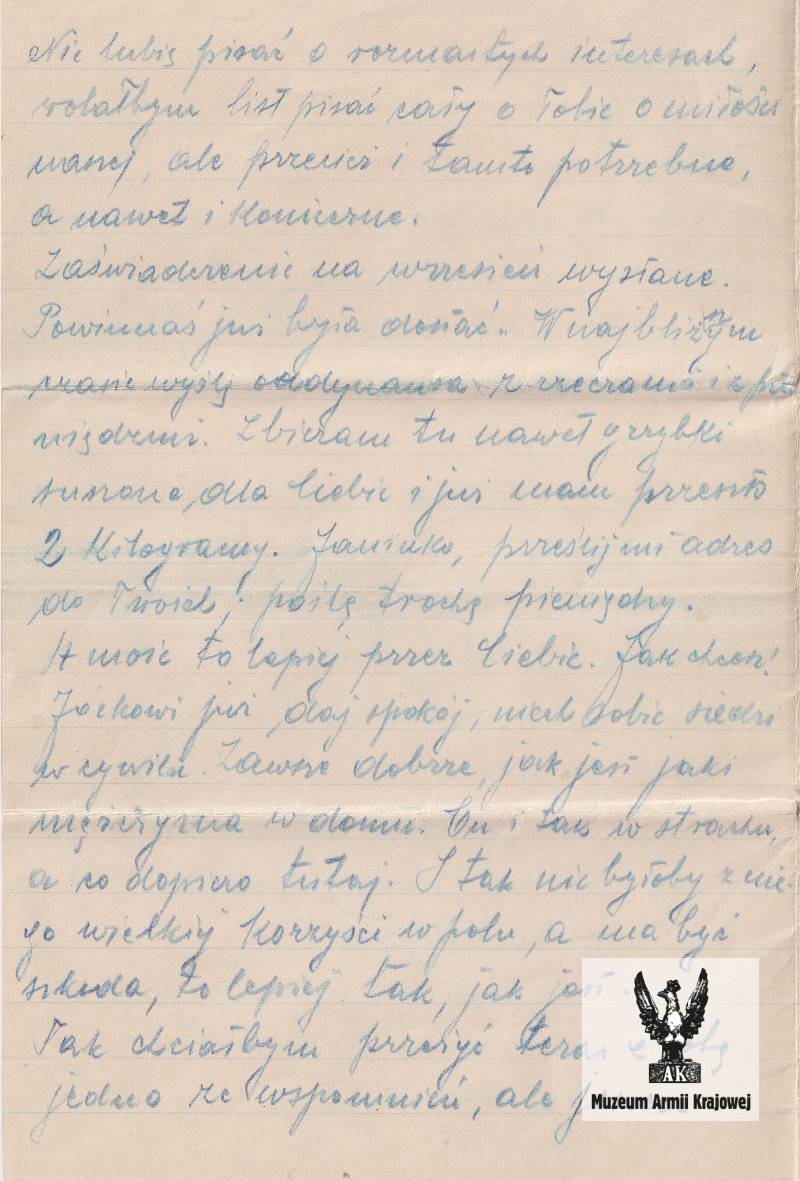 Nie lubię pisać o rozmaitych interesach,
wolałbym list pisać cały o Tobie o miłości
naszej, ale przecież i tamto potrzebne,
a nawet i konieczne.
Zaświadczenie na wrzesień wysłane.
Powinnaś już była dostać. W najbliższym
czasie wyślę ordynansa z rzeczami i z pie-
niędzmi. Zbieram tu nawet grzybki
suszone dla Ciebie i już mam przeszło
2 kilogramy. Janinko, prześlij mi adres
do Twoich, poślę trochę pieniędzy.
A może to lepiej przez Ciebie. Jak chcesz!
Józkowi już daj spokój, niech sobie siedzi
w cywilu. Zawsze dobrze, jak jest jaki
mężczyzna w domu. On i tak w strachu,
a co dopiero tutaj. I tak nie byłoby z nie-
go wielkiej korzyści w polu, a ma być
szkoda, to lepiej tak, jak jest.
Tak chciałbym przeżyć teraz z
jedno ze wspomnień, ale
AK
Muzeum Armii Krajowej